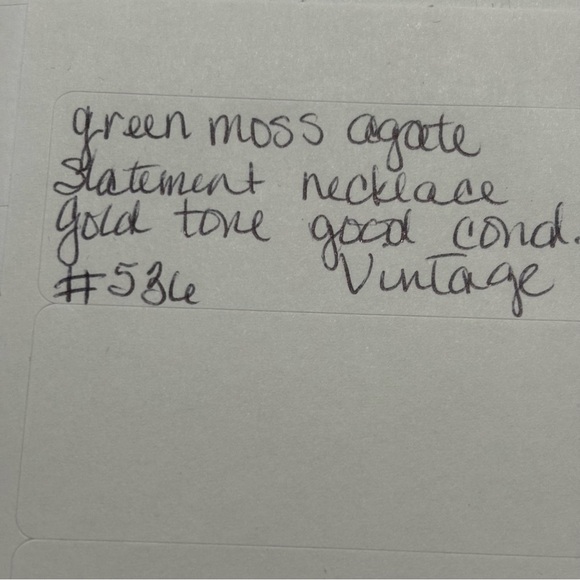 green moss agate
Statement necklace
gold tone good cond.
#536 Vintage